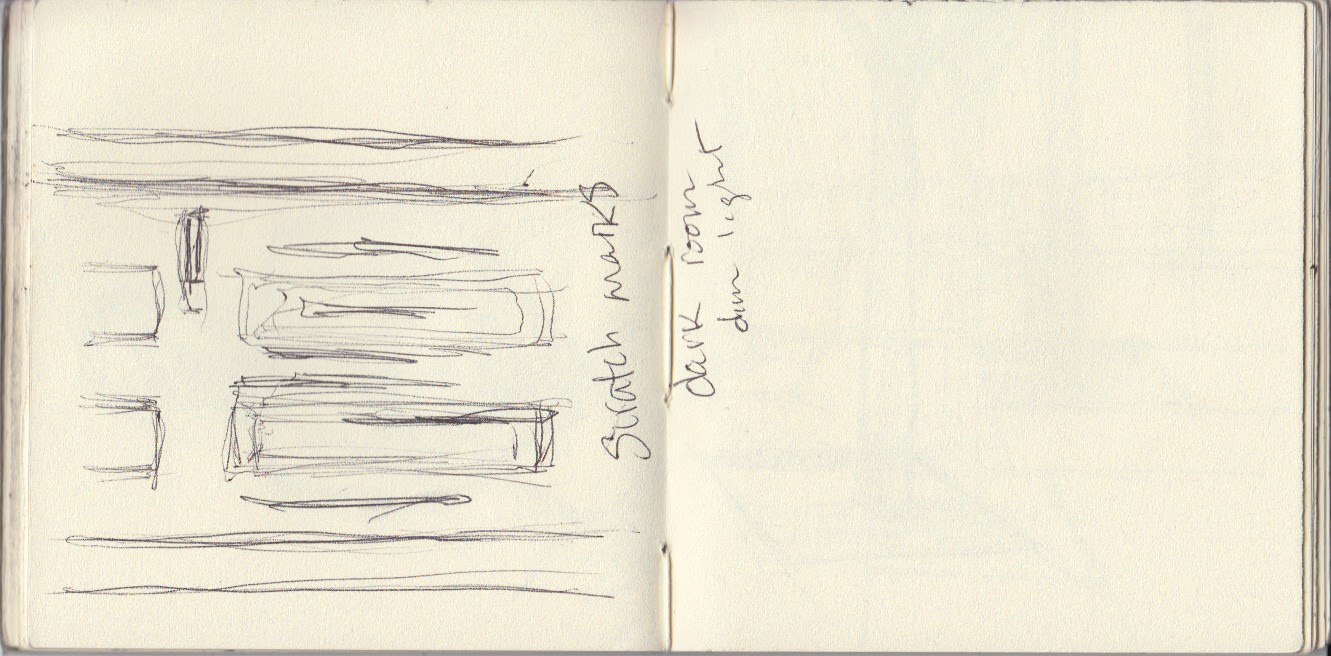 Scratch marks
dark room
dim light